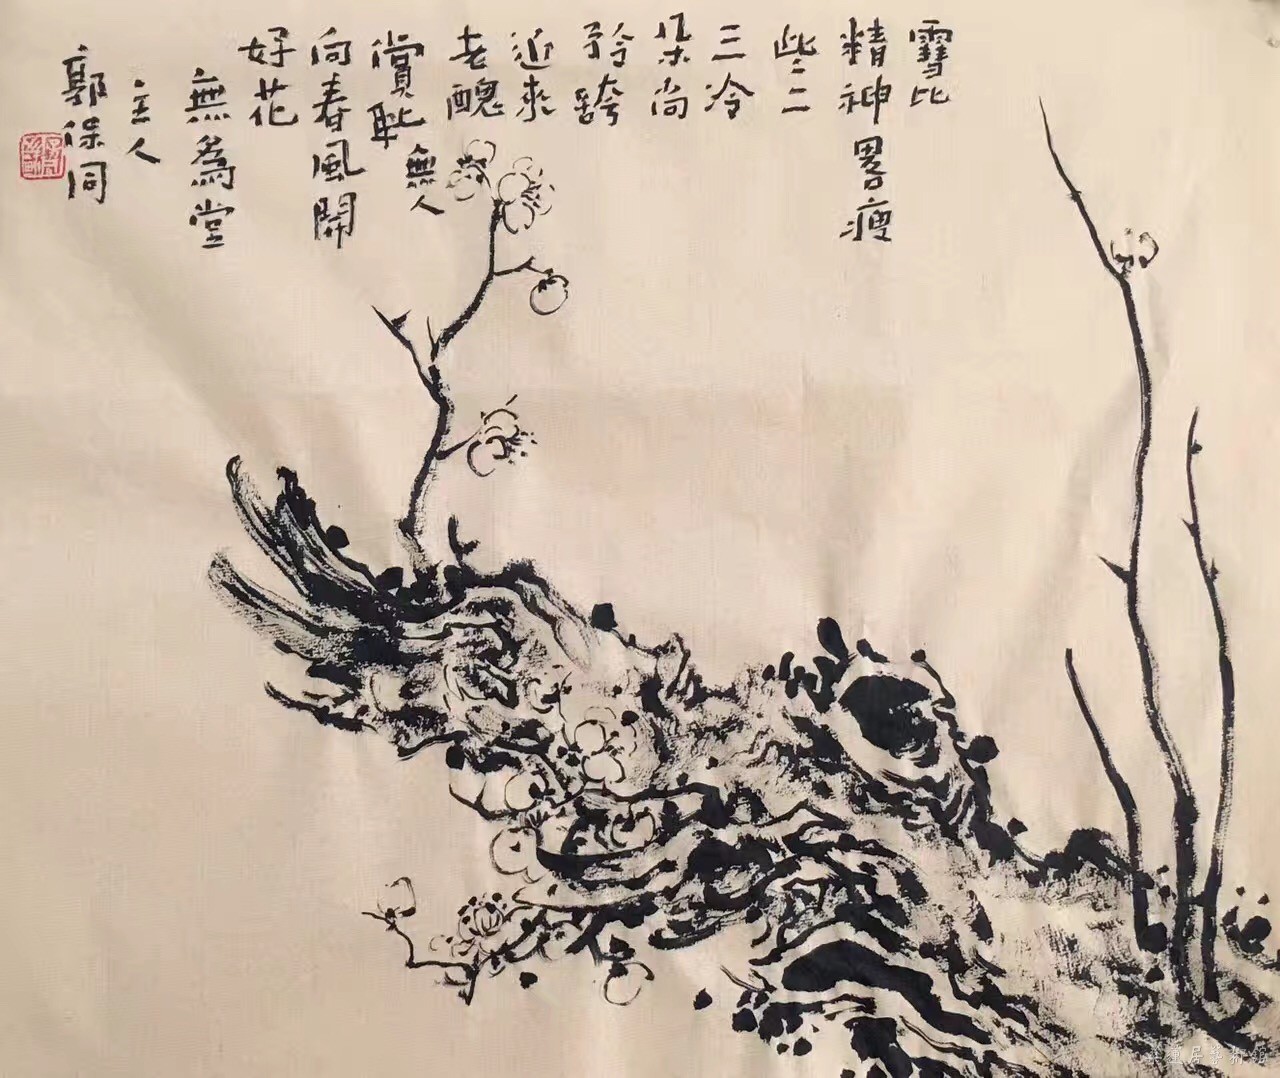 雪比
精神畧瘦
些二
三冷
朵尚
矜誇
近來
老醜
無人
賞恥
向春風開
好花
無爲堂
主人
郭保同